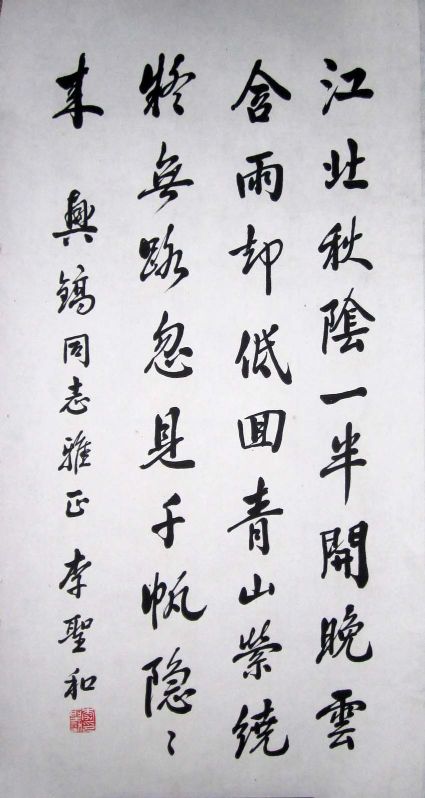 江北秋陰一半開晚雲
含雨却低囬青山縈繞
疑無路忽見千帆隱〻
来 興鎬同志雅正 李聖和